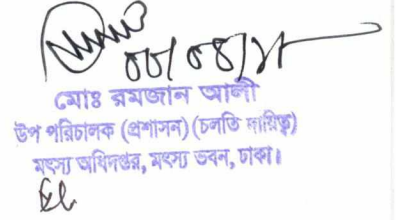 মোঃ রমজান আলী
উপ পরিচালক (প্রশাসন) (চলতি দায়িত্ব)
মৎস্য অধিদপ্তর, মৎস্য ভবন, ঢাকা।